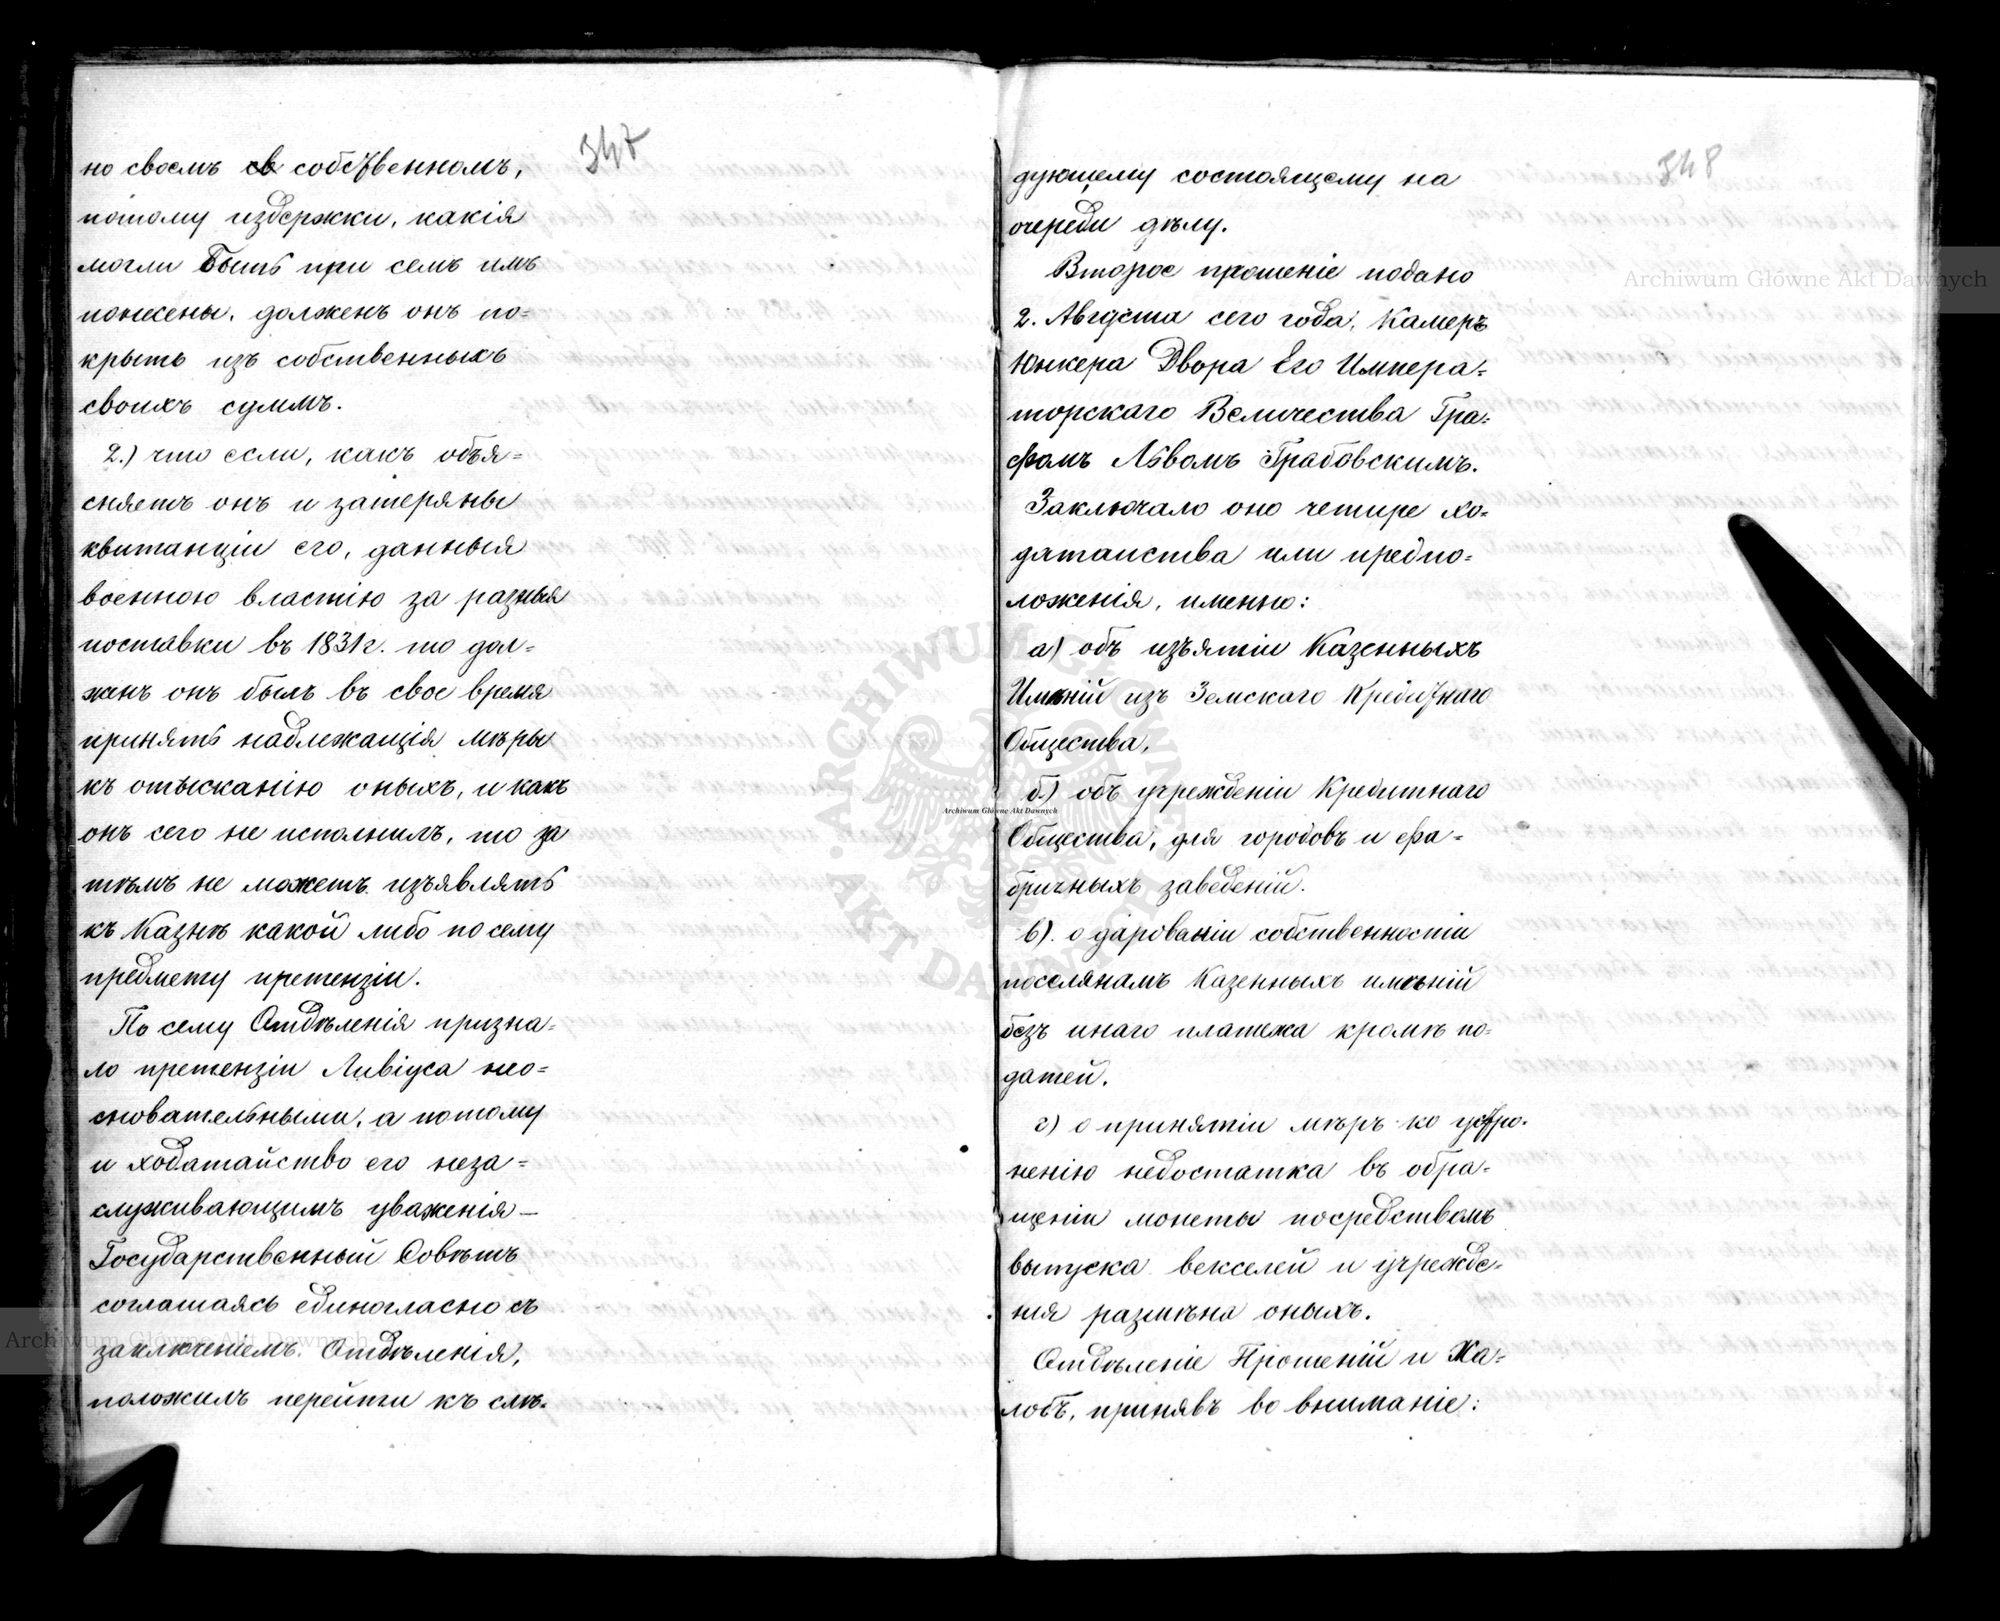 347
но своемъ св собственномъ,
потому издержки, какія
могли быть при семъ имъ
понесены, долженъ онъ по=
крыть изъ собственныхъ
своихъ суммъ.
2.) что если, какъ объя=
сняетъ онъ и затеряны
квитанціи его, данныя
военною властію за разныя
поставки въ 1831 г. то дол=
женъ онъ былъ въ свое время
принять надлежащія мѣры
къ отысканію оныхъ, и какъ
онъ сего не исполнилъ, то за
тѣмъ не можетъ изъявлять
къ Казнѣ какой либо по сему
предмету претензіи.
По сему Отдѣленія призна=
ло претензіи Ливіуса нео=
сновательными, а потому
и ходатайство его неза=
служивающимъ уваженія —
Государственный Совѣтъ
соглашаясь единогласно съ
заключеніемъ Отдѣленія,
положилъ перейти къ слѣ=
348
дующему состоящему на
очереди дѣлу.
Второе прошеніе подано
2. Августа сего года, Камеръ
Юнкера Двора Его Импера=
торскаго Величества Гра=
фомъ Львомъ Грабовскимъ.
Заключало оно четире хо=
датаиства или предпо=
ложенія, именно:
а) объ изъятіи Казенныхъ
Имѣній изъ Земскаго Кредитнаго
Общества,
б.) объ учрежденіи Кредитнаго
Общества, для городовъ и фа=
бричныхъ заведеній.
в). о дарованіи собственности
поселянамъ Казенныхъ имѣній
безъ инаго платежа кромѣ по=
датей.
г) о принятіи мѣръ ко устро=
ненію недостатка въ обра=
щеніи монеты посредствомъ
выпуска векселей и учрежде=
нія размѣна оныхъ.
Отдѣленіе Прошеній и Жа=
лобъ, принявъ во вниманіе:
Archiwum Główne Akt Dawnych
Archiwum Główne Akt Dawnych
Archiwum Główne Akt Dawnych
ARCHIWUM GŁÓWNE AKT DAWNYCH